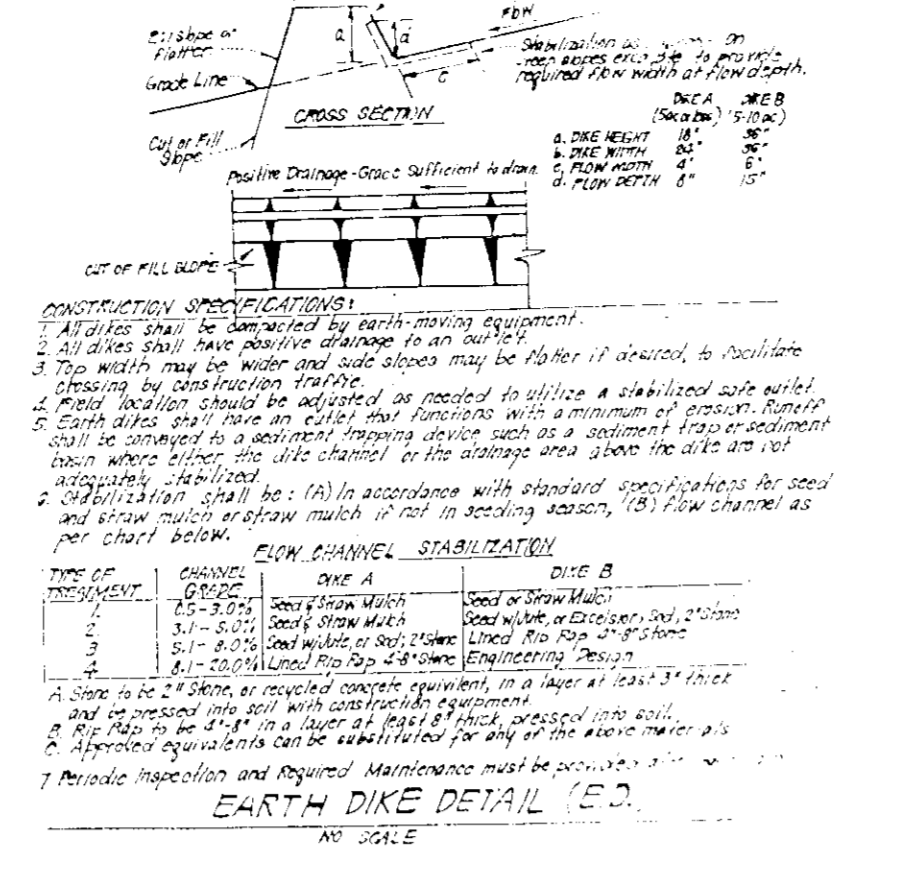 FLOW
slope or
flatter
a
d
Stabilization on
slopes to provide
required flow width at flow depth.
Grade Line
c
CROSS SECTION
DIKE A DIKE B
(5-10 ac)
a. DIKE HEIGHT 18" 36"
b. DIKE WIDTH 24" 36"
c. FLOW WIDTH 4' 6'
d. FLOW DEPTH 8" 15"
Cut or Fill
Slope
Positive Drainage-Grade Sufficient to drain
CUT OF FILL SLOPE
CONSTRUCTION SPECIFICATIONS:
1. All dikes shall be compacted by earth-moving equipment.
2. All dikes shall have positive drainage to an outlet.
3. Top width may be wider and side slopes may be flatter if desired, to facilitate
crossing by construction traffic.
4. Field location should be adjusted as needed to utilize a stabilized safe outlet.
5. Earth dikes shall have an outlet that functions with a minimum of erosion. Runoff
shall be conveyed to a sediment trapping device such as a sediment trap or sediment
basin where either the dike channel or the drainage area above the dike are not
adequately stabilized.
6. Stabilization shall be: (A) In accordance with standard specifications for seed
and straw mulch or straw mulch if not in seeding season, (B) flow channel as
per chart below.
FLOW CHANNEL STABILIZATION
TYPE OF TREATMENT CHANNEL GRADE DIKE A DIKE B
1 0.5-3.0% Seed & Straw Mulch Seed or Straw Mulch
2 3.1-5.0% Seed & Straw Mulch Seed w/Jute, or Excelsior, Sod, 2" Stone
3 5.1-8.0% Seed w/Jute, or Sod; 2" Stone Lined Rip Rap 4"-8" Stone
4 8.1-20.0% Lined Rip Rap 4-8" Stone Engineering Design
A. Stone to be 2" Stone, or recycled concrete equivilent, in a layer at least 3" thick
and be pressed into soil with construction equipment.
B. Rip Rap to be 4"-8" in a layer at least 8" thick, pressed into soil.
C. Approved equivalents can be substituted for any of the above materials
7 Periodic Inspection and Required Maintenance must be provided
EARTH DIKE DETAIL (E.D.
NO SCALE